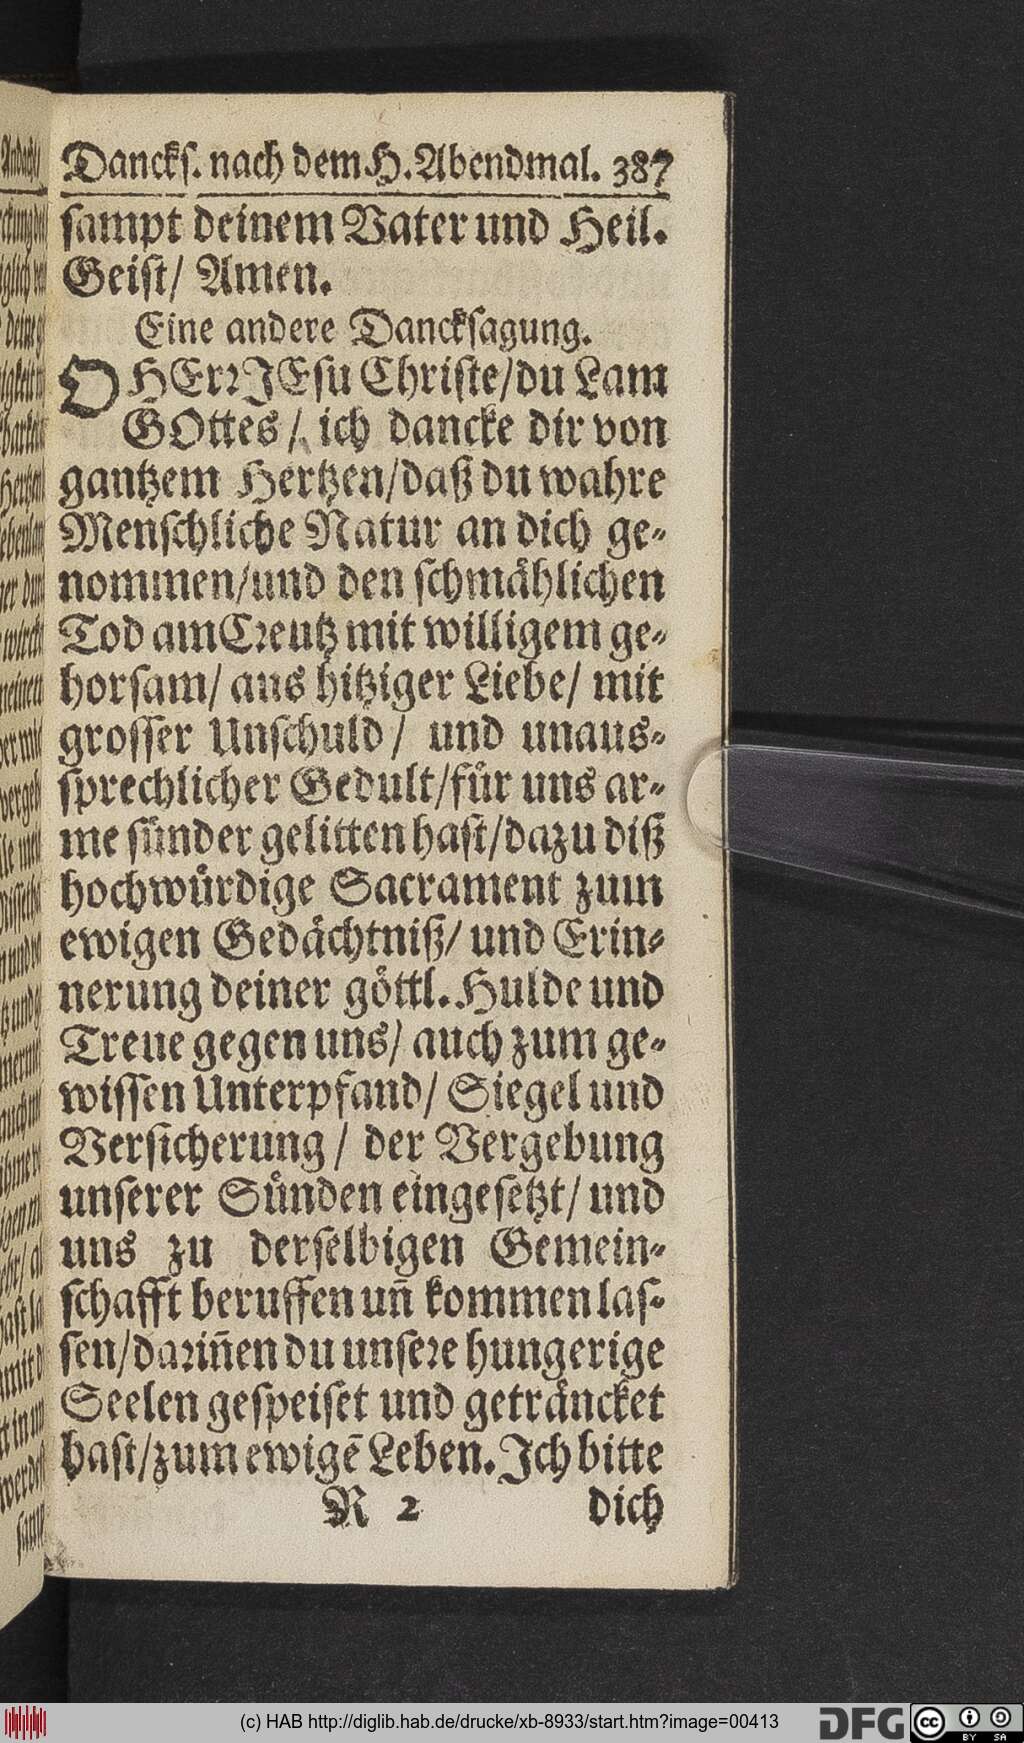 Dancks. nach dem H. Abendmal. 387
sampt deinem Vater und Heil.
Geist/ Amen.
Eine andere Dancksagung.
O HErr JEsu Christe/du Lam
GOttes/ ich dancke dir von
gantzem Hertzen/daß du wahre
Menschliche Natur an dich ge-
nommen/und den schmählichen
Tod am Creutz mit willigem ge-
horsam/ aus hitziger Liebe/ mit
grosser Unschuld/ und unaus-
sprechlicher Gedult/für uns ar-
me sünder gelitten hast/dazu diß
hochwürdige Sacrament zum
ewigen Gedächtniß/ und Erin-
nerung deiner göttl. Hulde und
Treue gegen uns/ auch zum ge-
wissen Unterpfand/ Siegel und
Versicherung/ der Vergebung
unserer Sünden eingesetzt/ und
uns zu derselbigen Gemein-
schafft beruffen uñ kommen las-
sen/dariñen du unsere hungerige
Seelen gespeiset und geträncket
hast/zum ewigē Leben. Ich bitte
R 2 dich
(c) HAB http://diglib.hab.de/drucke/xb-8933/start.htm?image=00413
DFG cc BY SA